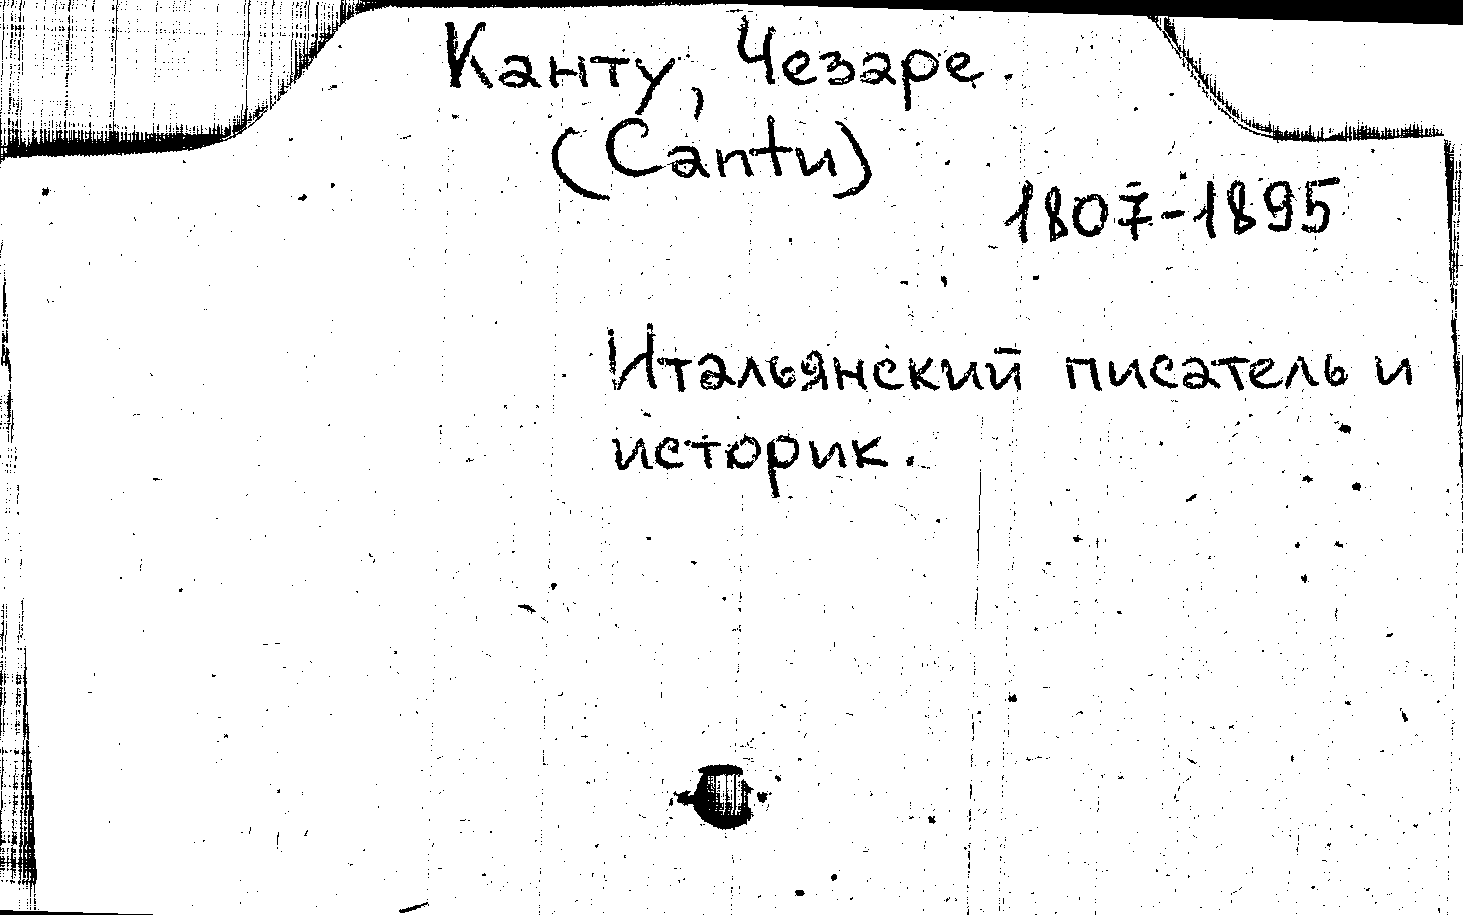 Канту, Чезаре.
(Cantu)
1807-1895
Итальянский писатель и
историк.